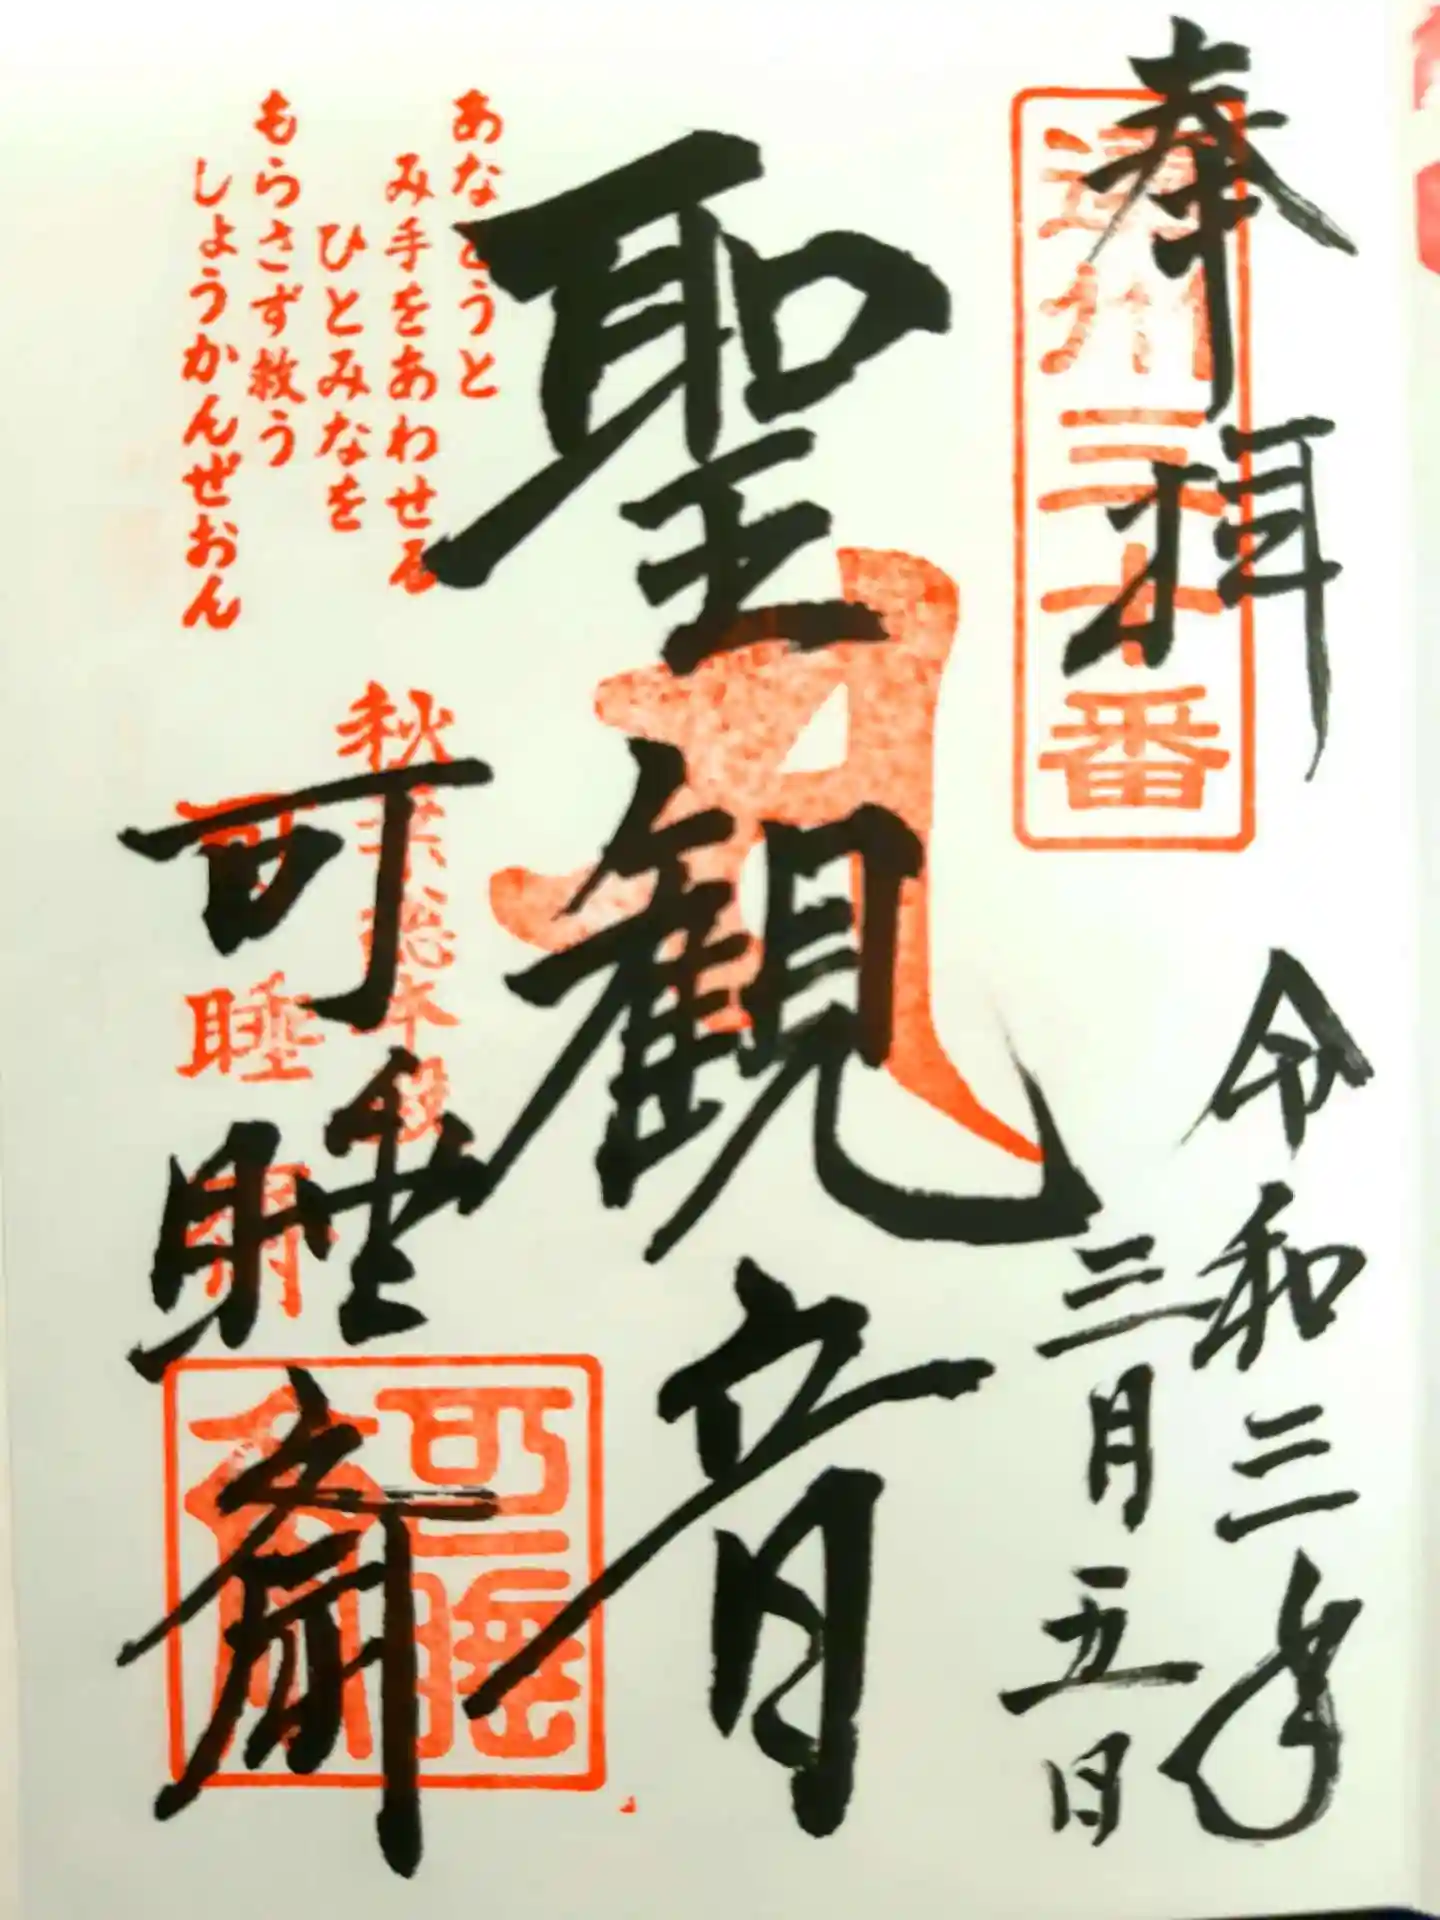 奉拝
遠州三十三番
令和三年
三月五日
聖観音
あなとうと
み手をあわせる
ひとみなを
もらさず救う
しょうかんぜおん
秋葉総本殿
可睡斎
可睡斎
可睡斎